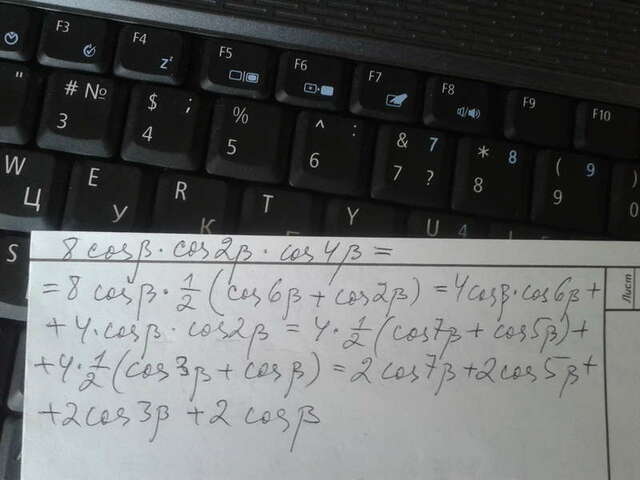 F3 F4 F5 F6 F7 F8 F9 F10
" # № 3 $ ; 4 % 5 ^ : 6 & 7 7 ? * 8 8 ( 9 9 )
W Ц E У R К T Y U 4
S
8 cosβ · cos2β · cos4β =
= 8 cosβ · 1/2 (cos6β + cos2β) = 4cosβ·cos6β +
+ 4·cosβ · cos2β = 4·1/2(cos7β + cos5β) +
+ 4·1/2 (cos3β + cosβ) = 2cos7β + 2cos5β +
+ 2cos3β + 2 cosβ
Лист